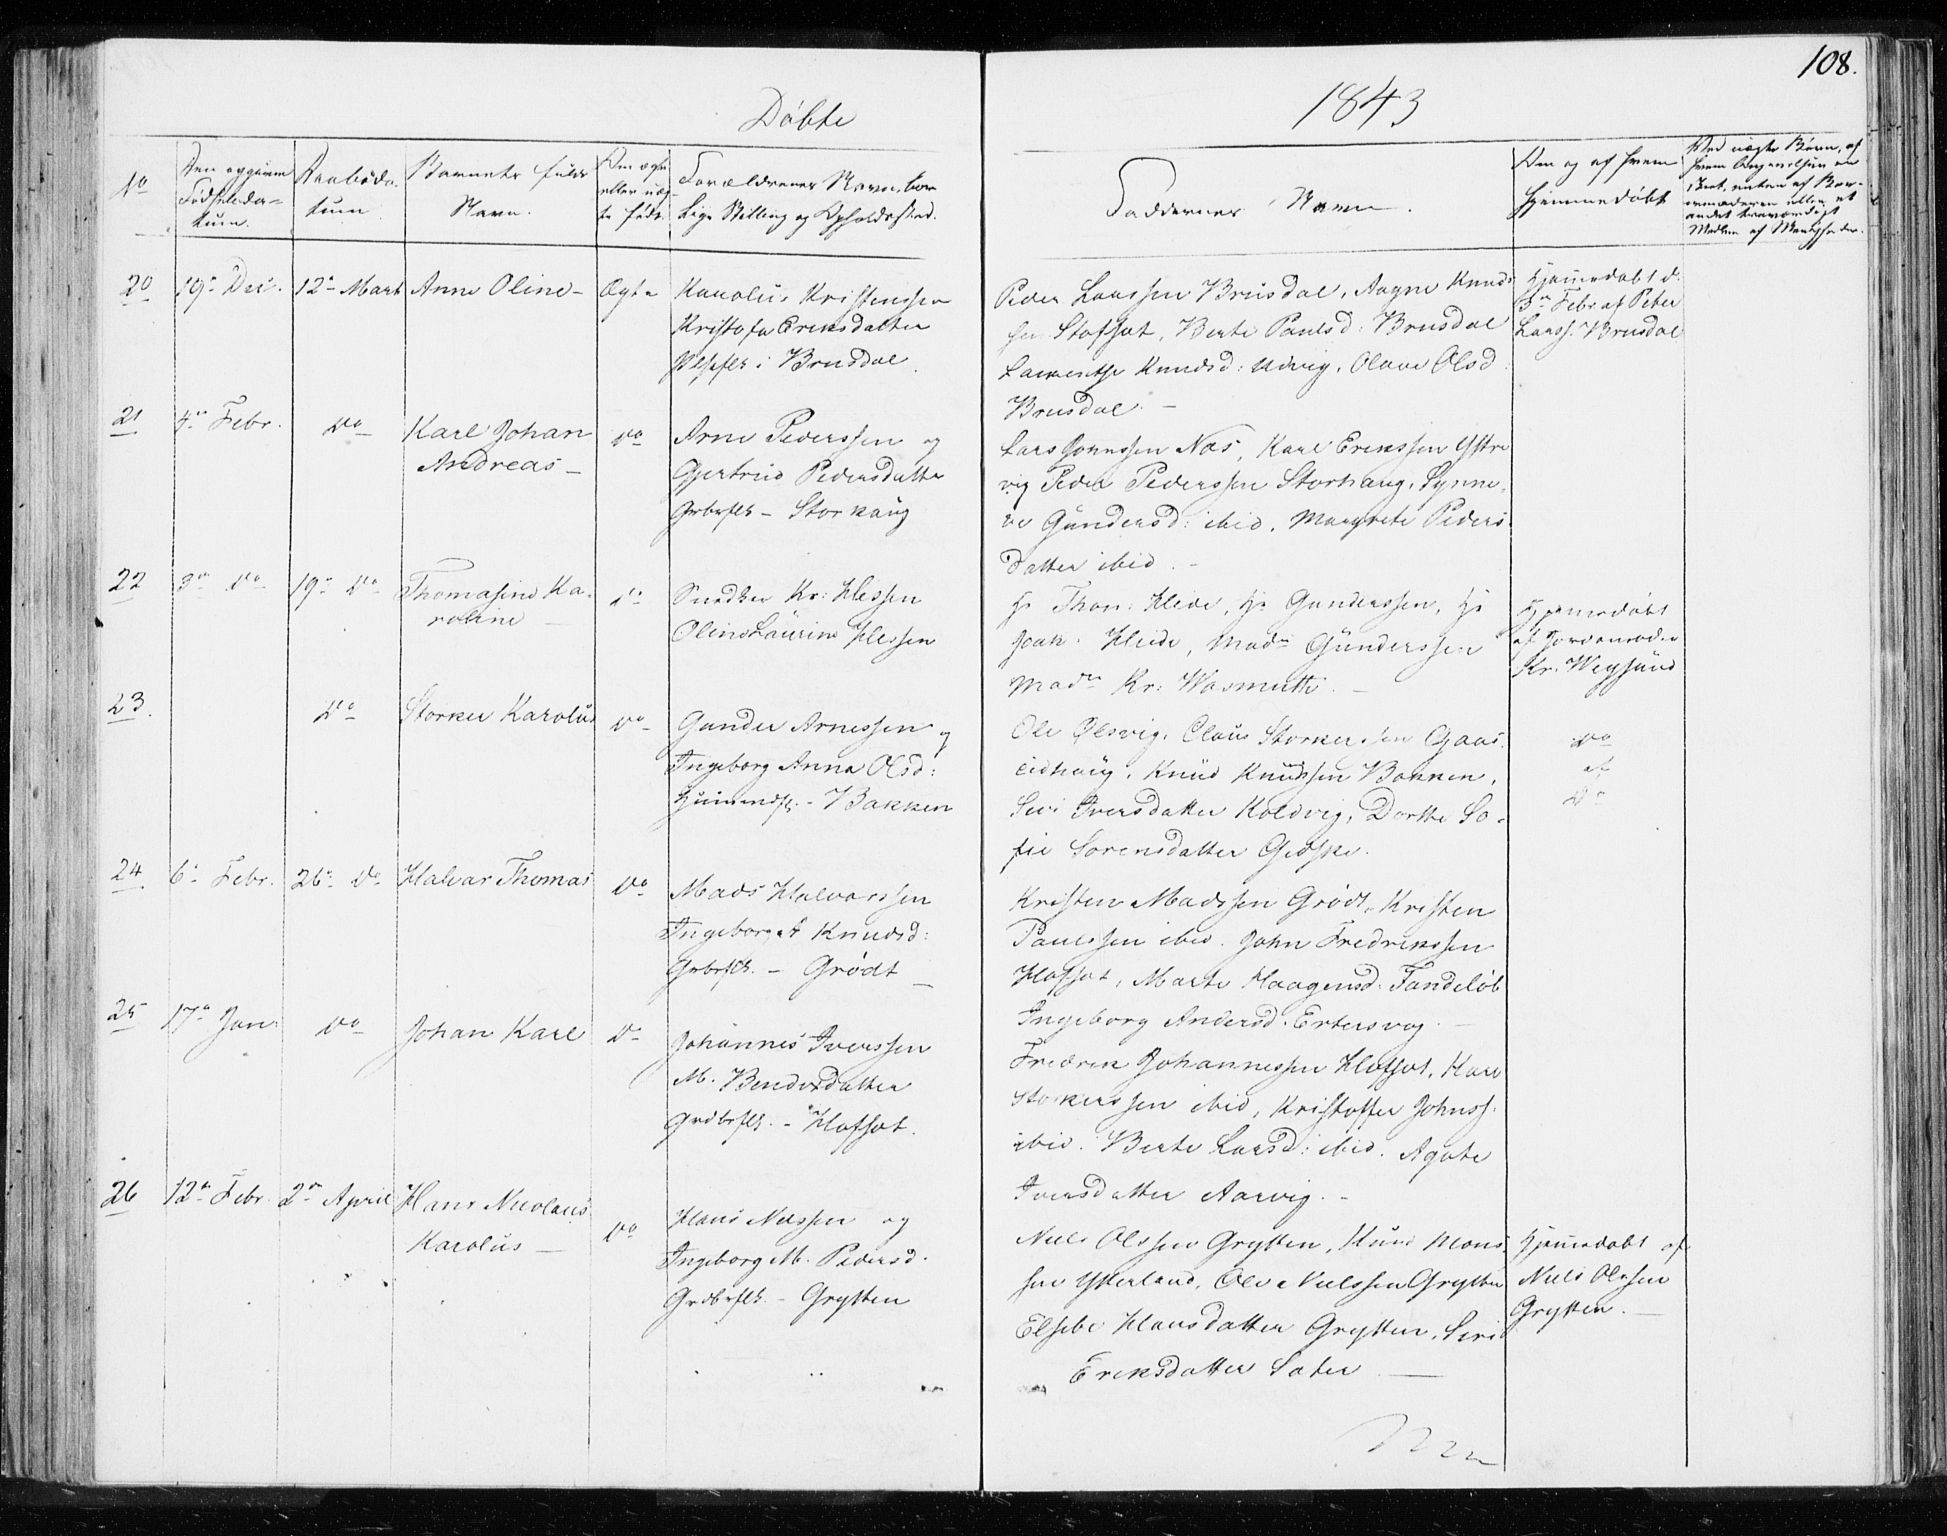 108.
Døbte
1843
No
Den opgivne
Fødselsda-
tum.
Daabsda-
tum.
Barnets fulde
Navn.
Om ægte
eller uæg-
te født.
Forældrenes Navn, bor-
lige Stilling og Opholdssted.
Faddernes Navn.
Om og af hvem
hjemmedøbt
Ved uægte Børn, af
hvem Angivelsen er
skeet, enten af Bar-
nemoderen eller et
andet troværdigt
Medlem af Menigheden.
20
19de Dec.
12te Marts
Anne Oline -
Ægte
Karolus Kristenssen
Kristofa Eriksdatter
i Brusdal.
Peder Larssen Brusdal, Aagne Knuds-
sen Stafset, Berte Paulsd: Brusdal
Laurentse Knudsd: Urvig, Olave Olsd:
Brusdal. -
Hjemmedøbt d:
3de Febr af Peter
Larss. Brusdal
21
4de Febr.
do
Karl Johan
Andreas -
do
Arne Pederssen og
Gjertrud Pedersdatter
Grbrflk - Storhaug
Lars Jonessen Næs, Karl Erikssen Ystre-
vig Peder Pederssen Storhaug, Synne-
ve Gundersd: ibid, Margrete Peders-
datter ibid. -
22
3de do
19de do
Thomasine Ka-
roline -
do
Snedker Kr: Hessen
Oline Laurine Hessen
Hr Thom: Heide, Hr Gunderssen, Hr
Joak. Heide, Madm Gunderssen
Madm Kr: Wasmuth. -
Hjemmedøbt
af Jordemoder
Kr. Weysund
23.
do
Storker Karolus
do
Gunder Arnessen og
Ingeborg Anna Olsd:
Huusmdflk. - Bakken
Ole Ølsvig, Claus Storkerssen Gaas-
eidhaug, Knud Knudssen Bakken,
Siri Iversdatter Koldvig, Dorthe So-
fie Sørensdatter Gidske.
do
af
do
24
6te Febr.
26de do
Halvar Thomas
do
Mads Halvorssen
Ingeborg A Knudsd:
Grbrflk. - Grødt -
Kristen Madssen Grødt, Kristen
Paulssen ibid. John Fredrikssen
Hofset, Marte Haagensd: Tandeløb
Ingeborg Andersd. Ertersvag. -
25
17de Jan:
do
Johan Karl
do
Johannes Iverssen
M. Bendixdatter
Grdbrflk. - Hofset.
Fredrik Johannessen Hofset, Karl
Storkerssen ibid, Kristoffer Johnss.
ibid. Berte Larsd: ibid. Agate
Iversdatter Aarvig. -
26
12te Febr.
2den April
Hans Nicolaus
Karolus -
do
Hans Nilssen og
Ingeborg M. Pedersd.
Grdbrflk. - Grytten
Niels Olssen Grytten, Knud Mons-
sen Ytterland, Ole Nielssen Grytten
Elsebe Hansdatter Grytten, Siri
Eriksdatter Sæter -
Hjemmedøbt af
Niels Olssen
Grytten. -